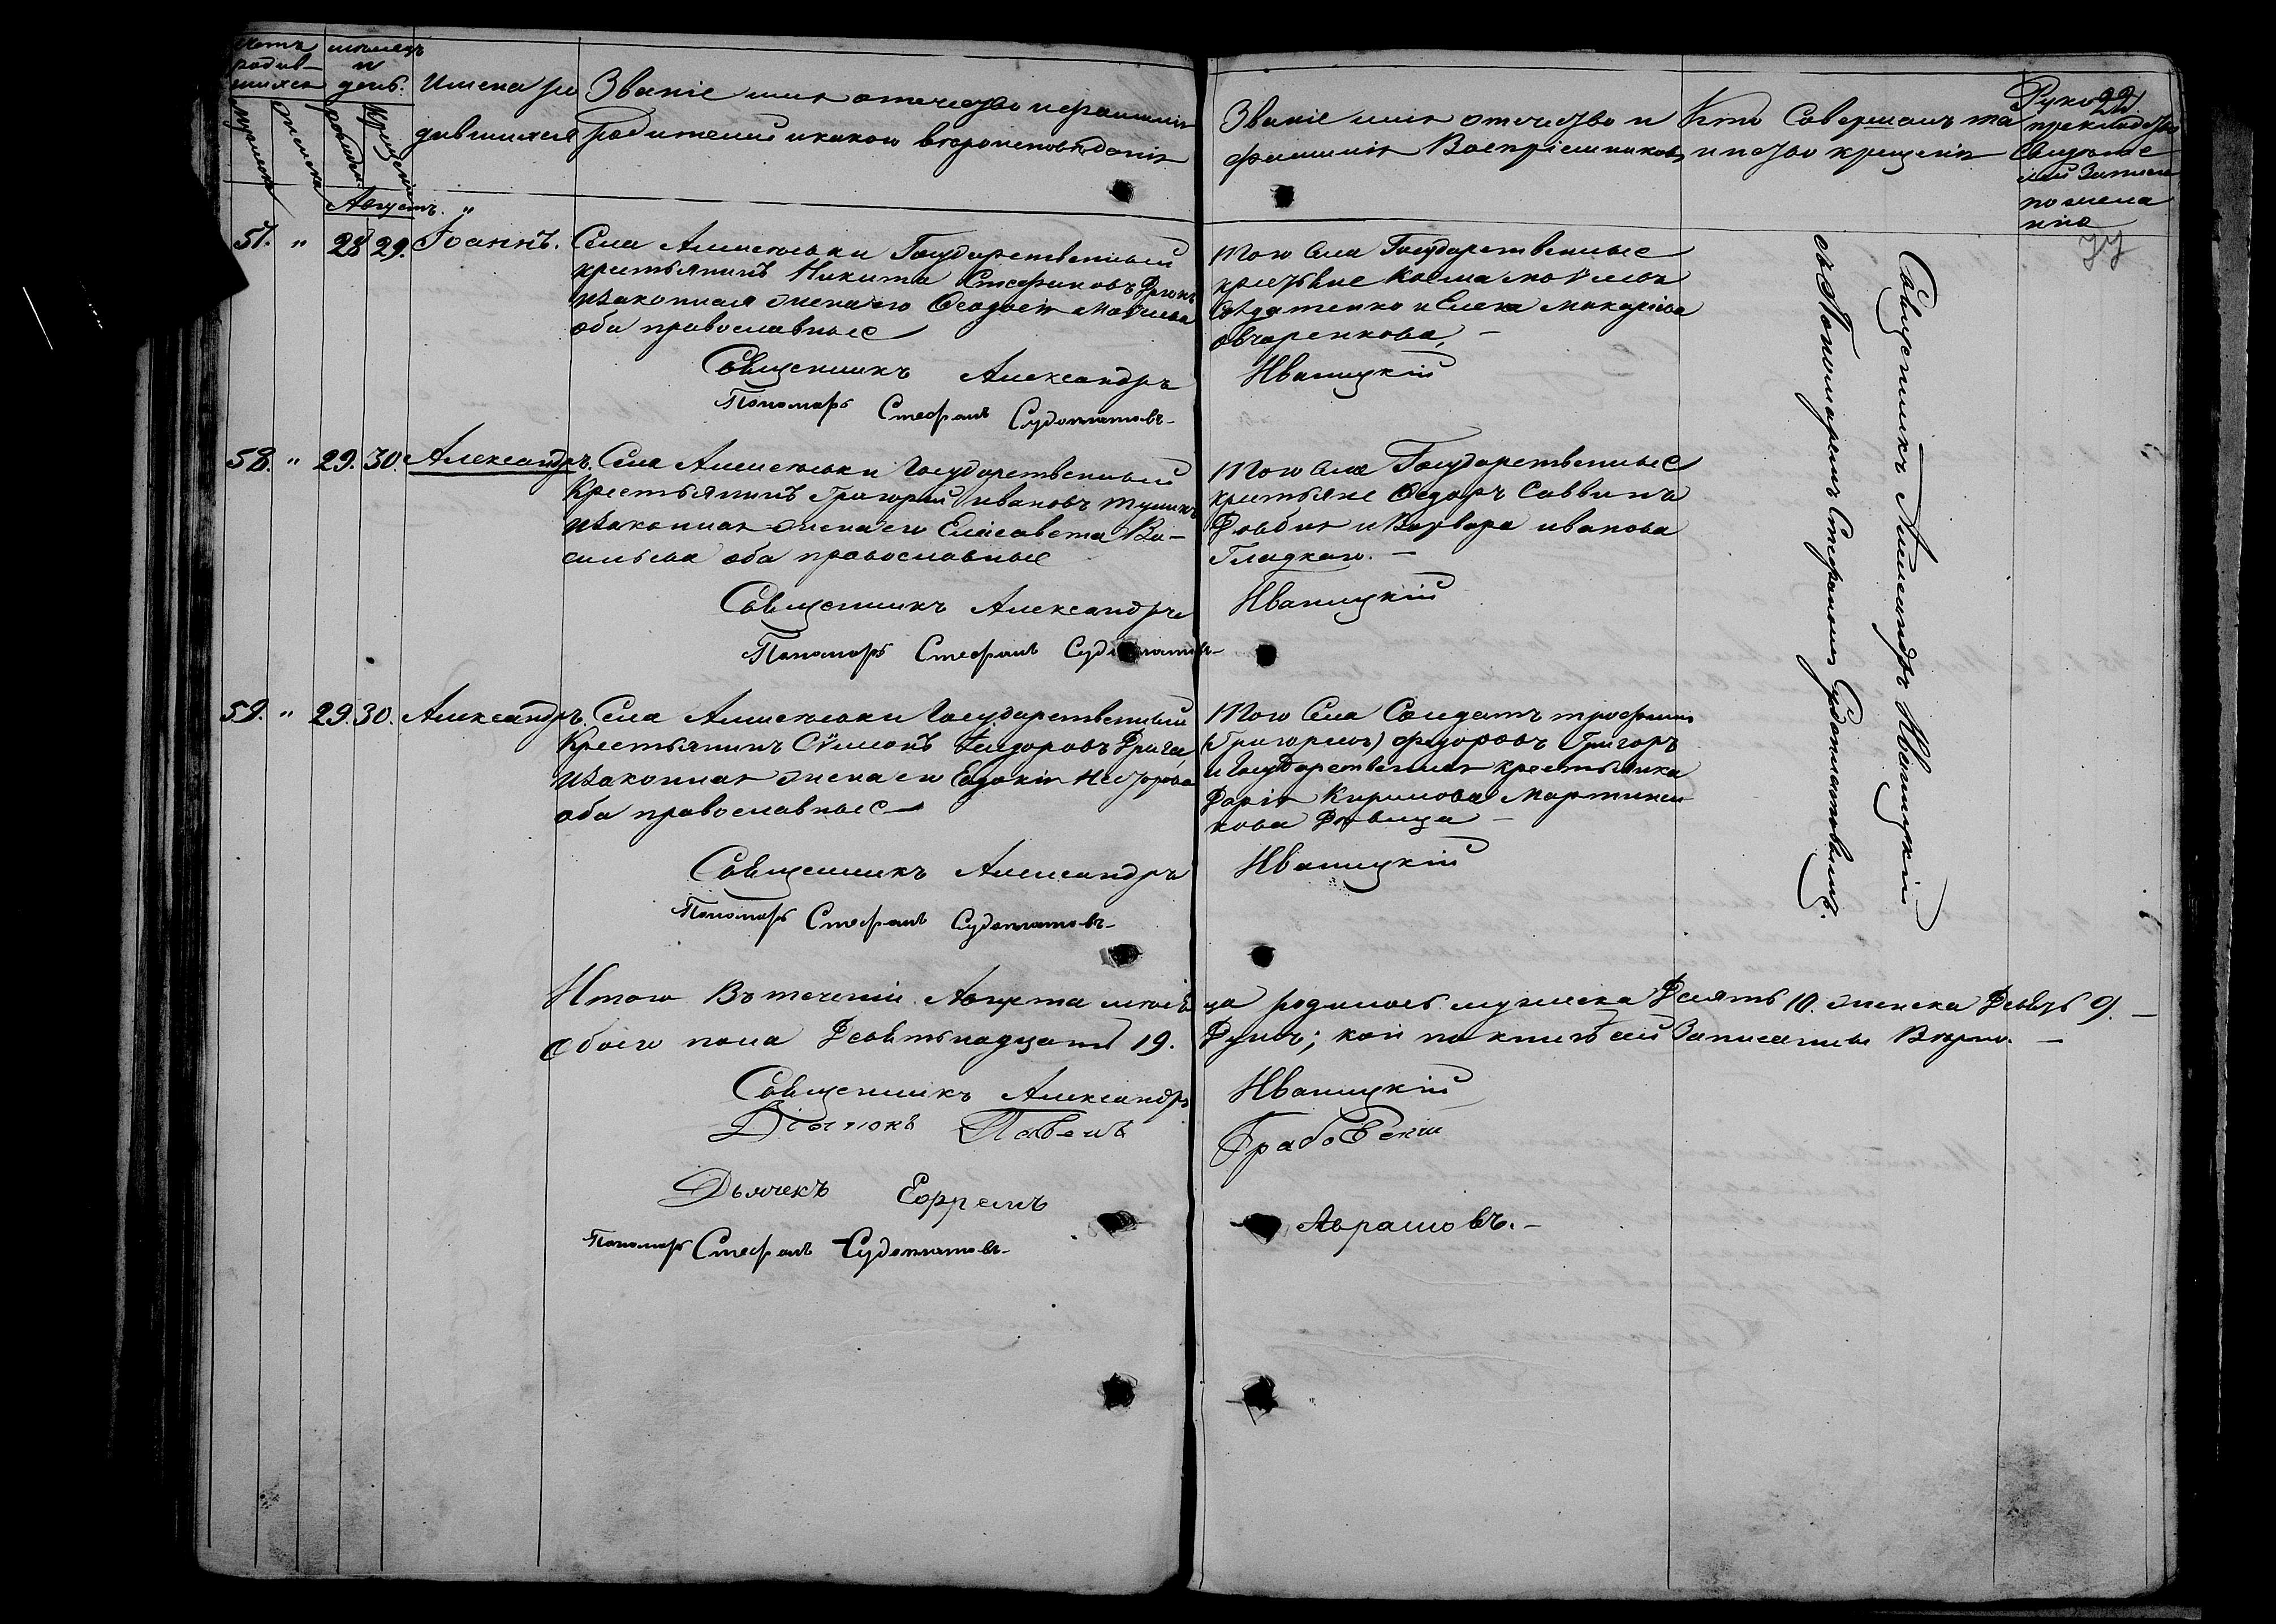 Счетъ родив-
шихся
мужеска
женска
мѣсяцъ
и
день.
рожден.
крещенія
Имена ро
дившихся
Званіе имя отечество и фамилія
Родителей и какого вѣроисповѣданія
Званіе имя отчество и
фамилія Воспріемниковъ
Кто Совершалъ та
инство крещенія
Руко
22.
приклад
Свидѣте
лей записи
по жела
нію
77
Августъ.
57. " 28 29. Іоаннъ. Села Алексѣевки Государственный
крестьянинъ Никита Стефановъ
и законная жена его Ѳеодосія Моѵсеева
оба православные
Того Села Государственные
крестьяне Косма Моѵсеевъ
Солдатенко и Елена Макаріева
Овчаренкова,
Священникъ Александръ Иваницкій
Пономарь Стефанъ Судоплатовъ
58. " 29. 30. Александръ. Села Алексѣевки Государственный
Крестьянинъ Григорій Ивановъ
и законная жена его Елисавета Ва-
сильева оба православные
Того Села Государственные
крестьяне Ѳедоръ Саввинъ
и Варвара Иванова
Гладкаго.
Священникъ Александръ Иваницкій
Пономарь Стефанъ Судоплатовъ
59. " 29. 30. Александръ. Села Алексѣевки Государственный
Крестьянинъ Сѵмеонъ Ѳеодоровъ Дрига,
и законная жена его Евдокія Несторова
оба православные
Того Села Солдатъ Трофимъ
(Григорьевъ) Федоровъ Григоръ
и Государственная крестьянка
Дарія Кирилова Мартынен
кова Дѣвица
Священникъ Александръ Иваницкій
Пономарь Стефанъ Судоплатовъ
Священникъ Александръ Иваницкій
съ Пономаремъ Стефаномъ Судоплатовымъ.
Итого Въ теченіи Августа мѣсяца родилось мужеска Десять 10. женска Девять 9.
Обоего пола Девятьнадцать 19. Душъ; кои по книгѣ сей Записаны Вѣрно.
Священникъ Александръ Иваницкій
Діаконъ Павелъ Грабовскій
Дьячекъ Ефремъ Аврамовъ.
Пономарь Стефанъ Судоплатовъ